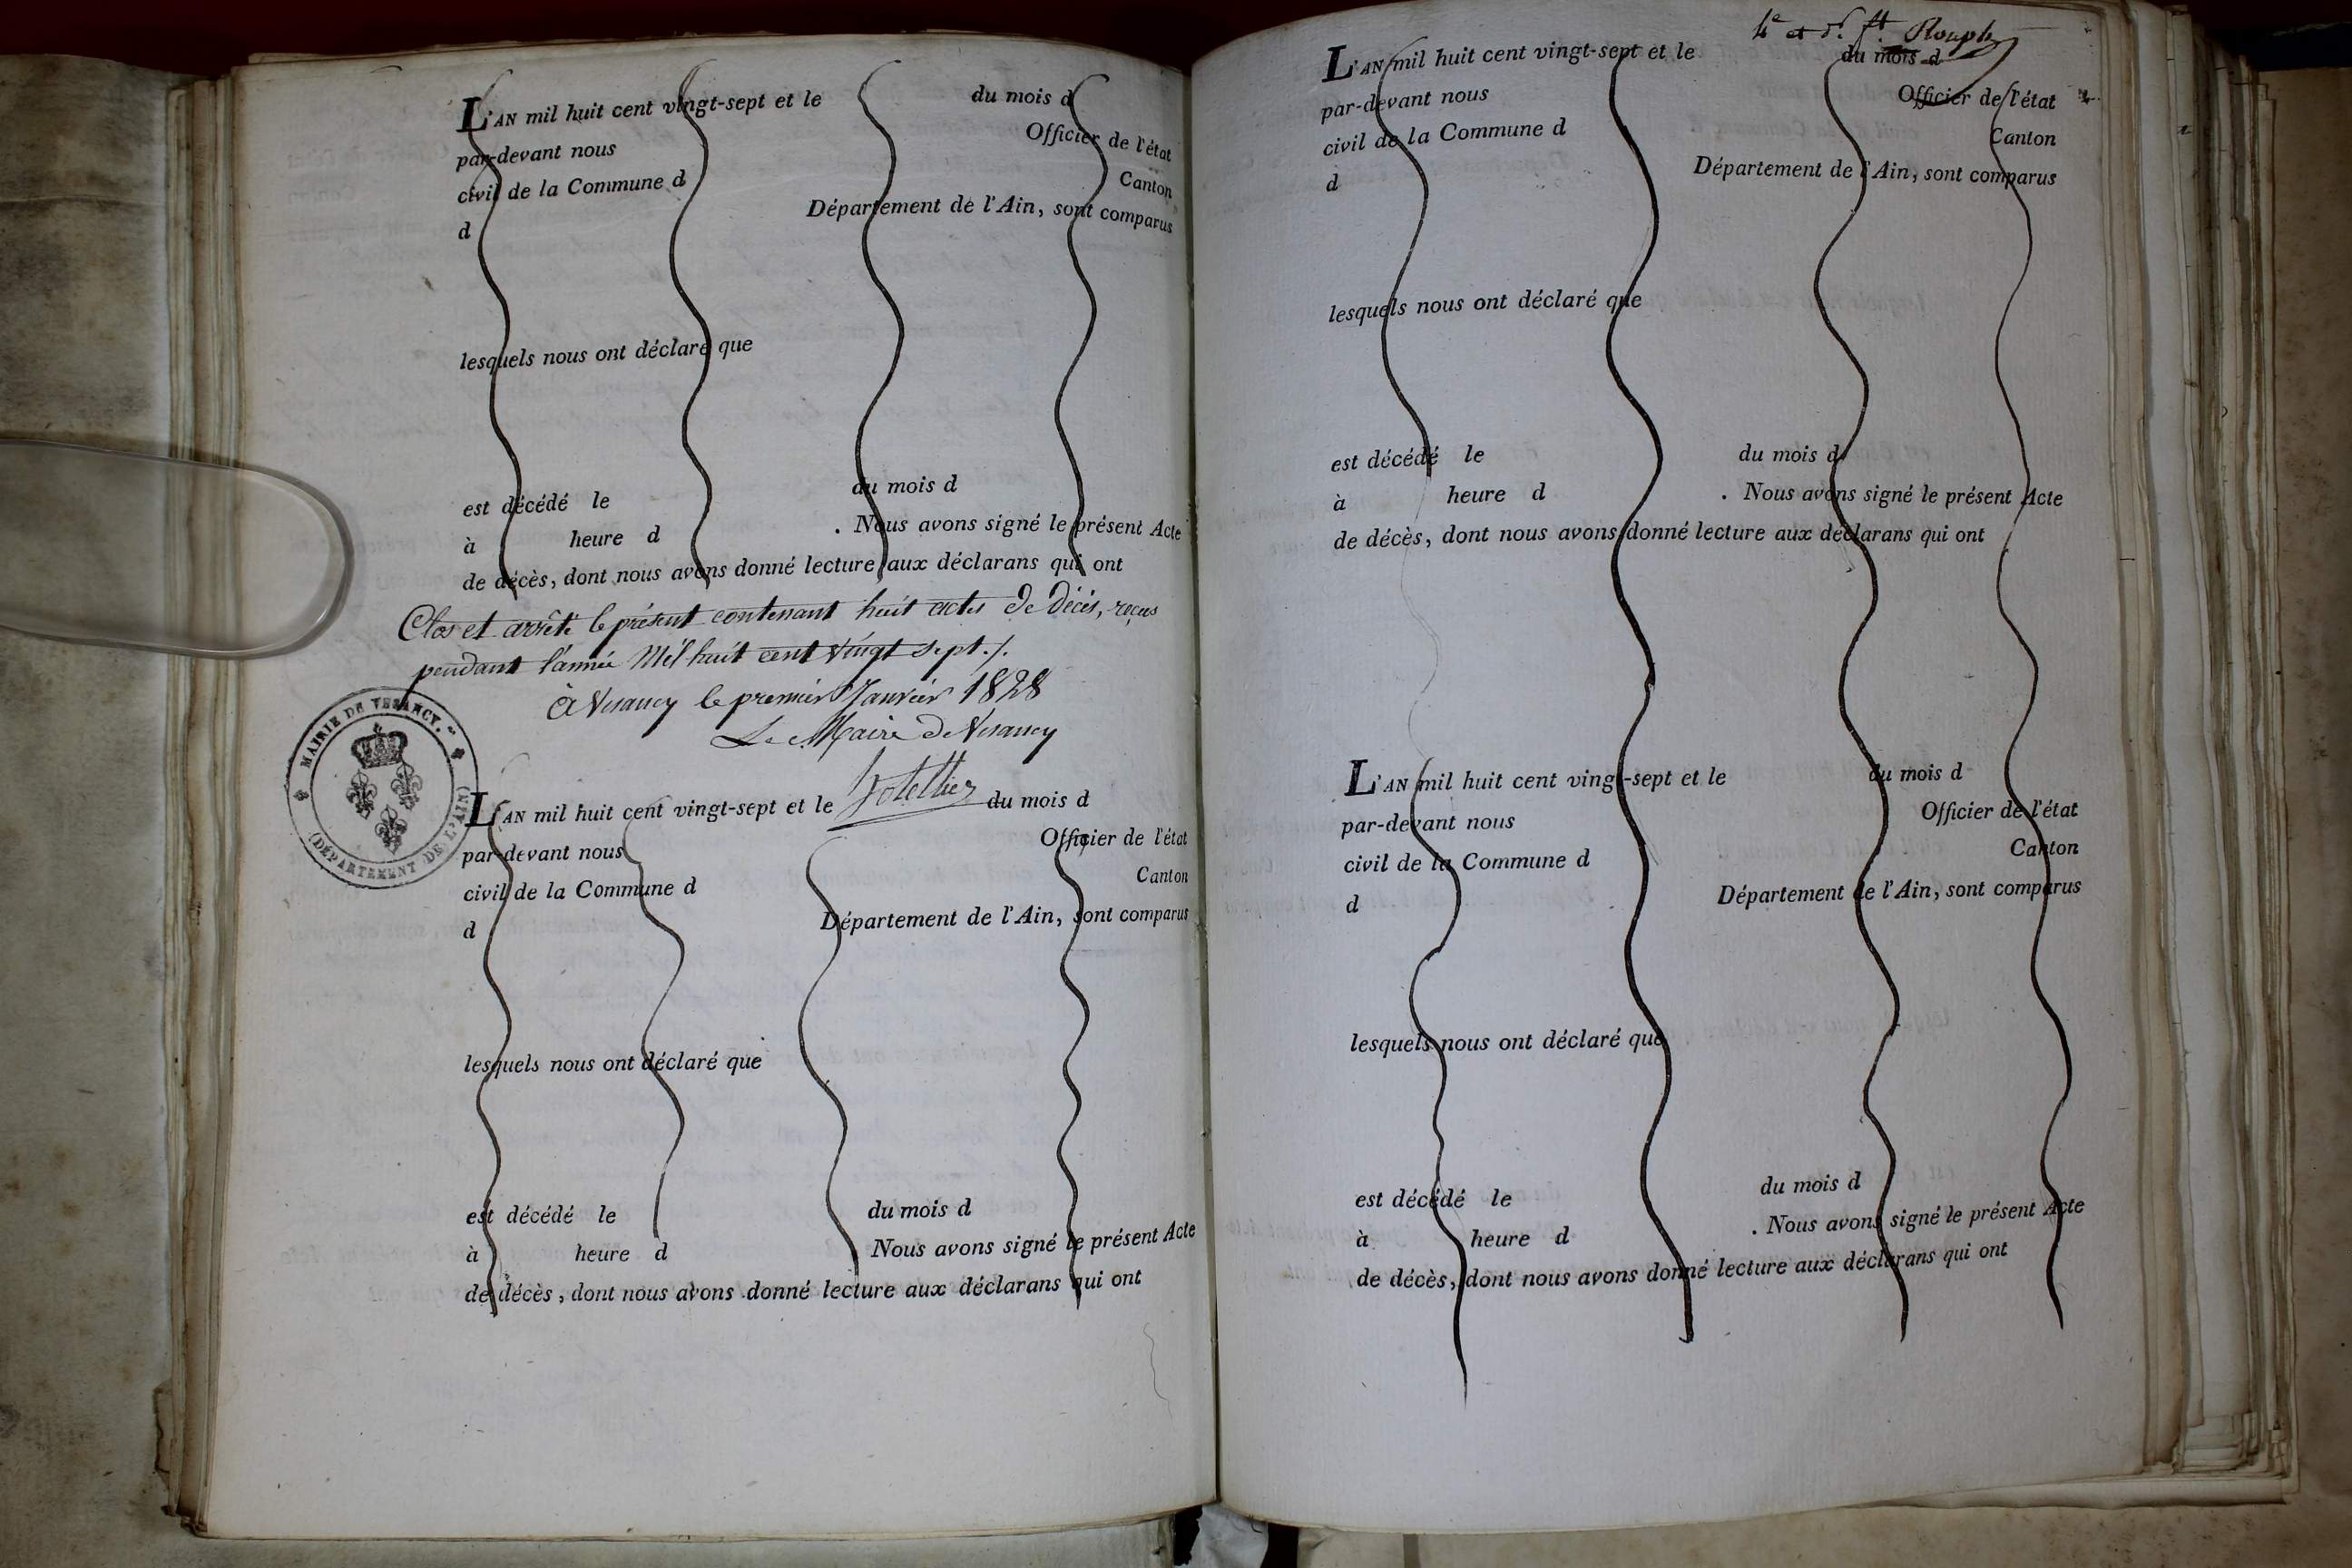 L'AN mil huit cent vingt-sept et le du mois d
par-devant nous Officier de l'état
civil de la Commune d Canton
d Département de l'Ain, sont comparus
lesquels nous ont déclaré que
est décédé le du mois d
à heure d . Nous avons signé le présent Acte
de décès, dont nous avons donné lecture aux déclarans qui ont
Clos et arrêté le présent contenant huit actes de décès, reçus
pendant l'année Mil huit cent vingt sept ./.
à Vesancy le premier Janvier 1828
Le Maire de Vesancy
MAIRIE DE VESANCY.
(DÉPARTEMENT DE L'AIN)
L'AN mil huit cent vingt-sept et le du mois d
par-devant nous Officier de l'état
civil de la Commune d Canton
d Département de l'Ain, sont comparus
lesquels nous ont déclaré que
est décédé le du mois d
à heure d Nous avons signé le présent Acte
de décès, dont nous avons donné lecture aux déclarans qui ont
4e et
L'AN mil huit cent vingt-sept et le du mois d
par-devant nous Officier de l'état
civil de la Commune d Canton
d Département de l'Ain, sont comparus
lesquels nous ont déclaré que
est décédé le du mois d
à heure d . Nous avons signé le présent Acte
de décès, dont nous avons donné lecture aux déclarans qui ont
L'AN mil huit cent vingt-sept et le du mois d
par-devant nous Officier de l'état
civil de la Commune d Canton
d Département de l'Ain, sont comparus
lesquels nous ont déclaré que
est décédé le du mois d
à heure d . Nous avons signé le présent Acte
de décès, dont nous avons donné lecture aux déclarans qui ont